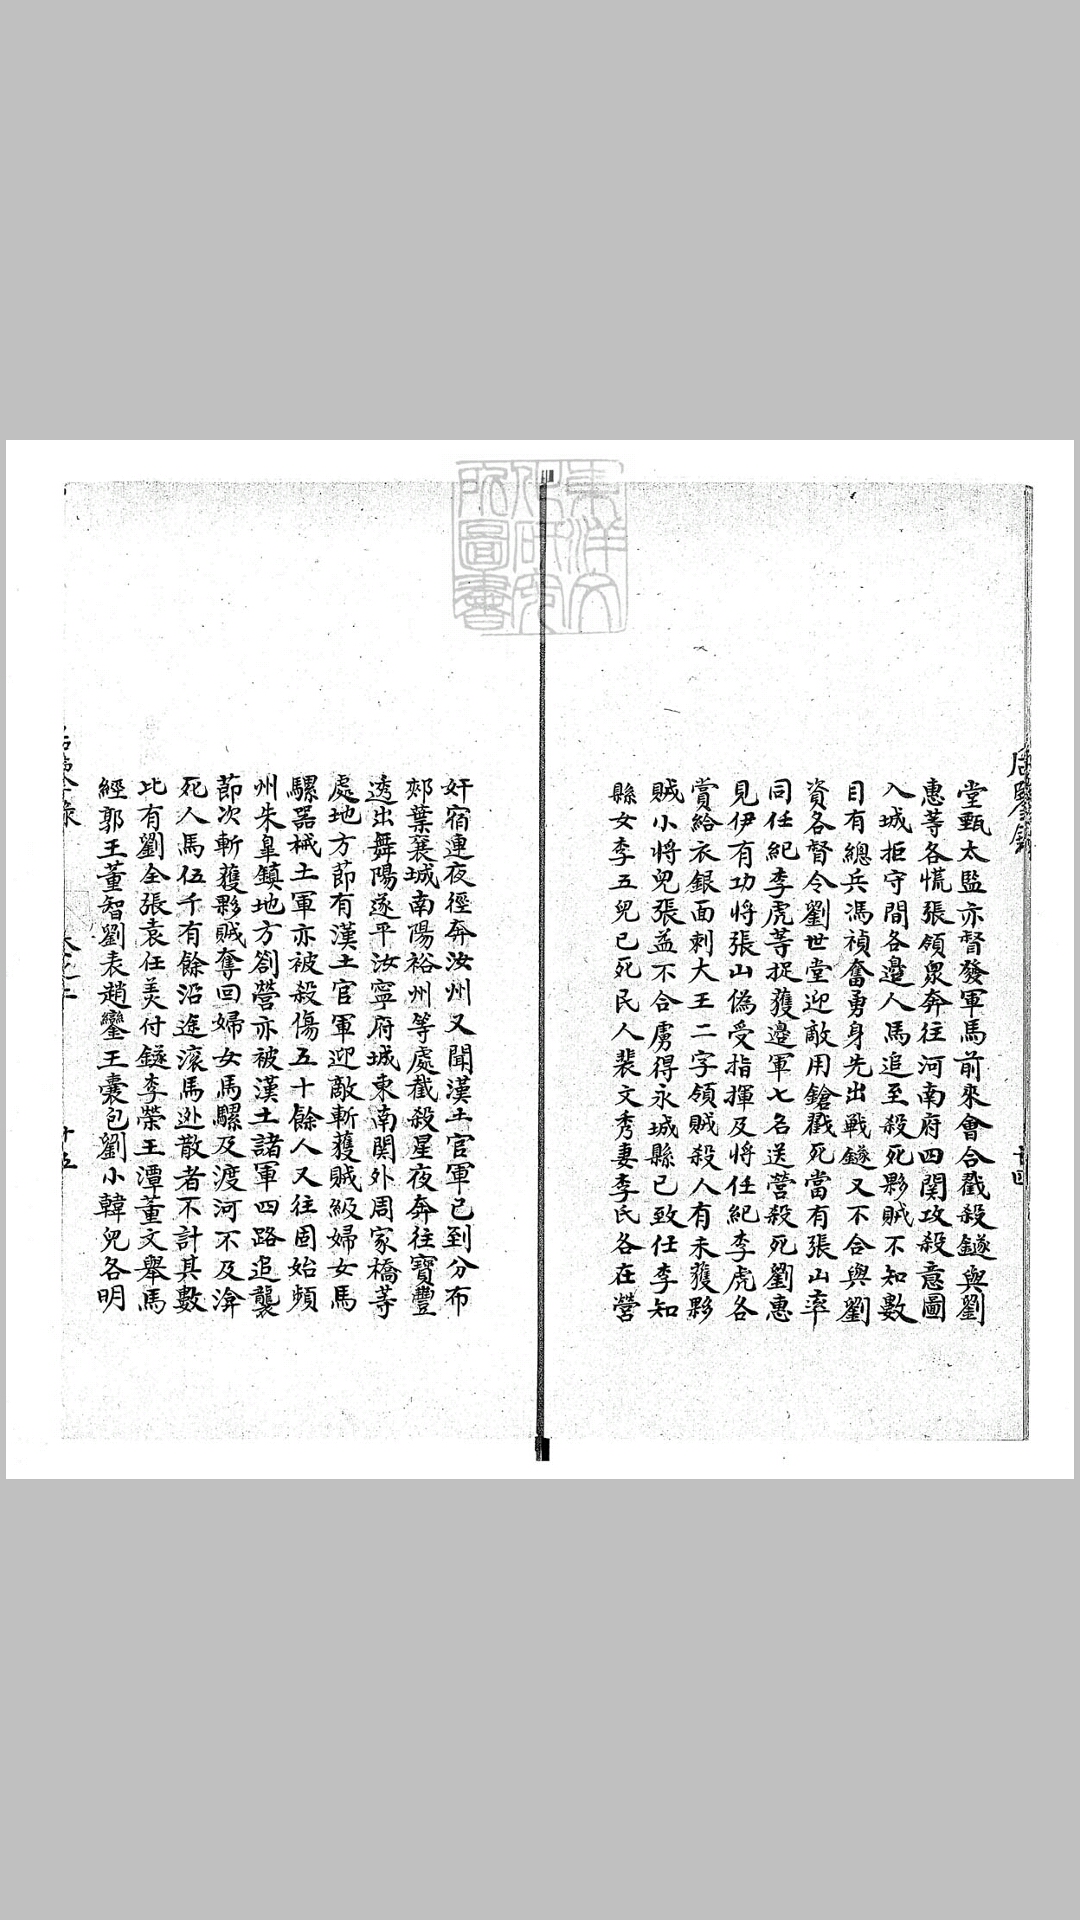 堂甄太監亦督發軍馬前來會合戳殺鐩與劉
惠等各慌張領衆奔往河南府四関攻殺意圖
入城拒守間各邊人馬追至殺死夥賊不知數
目有總兵馮禎奮勇身先出戰鐩又不合與劉
資各督令劉世堂迎敵用鎗戳死當有張山率
同任紀李虎等捉獲邉軍七名送營殺死劉惠
見伊有功將張山偽受指揮及將任紀李虎各
賞給衣銀面刺大王二字領賊殺人有未獲夥
賊小將兒張益不合虜得永城縣已致仕李知
縣女李五兒已死民人裴文秀妻李氏各在營
奸宿連夜徑奔汝州又聞漢土官軍已到分布
郟葉襄城南陽裕州等處截殺星夜奔往寶豐
透出舞陽遂平汝寧府城東南関外周家橋等
處地方節有漢土官軍迎敵斬獲賊級婦女馬
騾器械土軍亦被殺傷五十餘人又往固始頻
州朱皐鎮地方劄營亦被漢土諸軍四路追襲
節次斬獲夥賊奪回婦女馬騾及渡河不及渰
死人馬伍千有餘沿途滚馬迯散者不計其數
比有劉全張袁任羙付鐩李榮王潭董文舉馬
經郭王董智劉表趙鑾王囊包劉小韓兒各明
十五